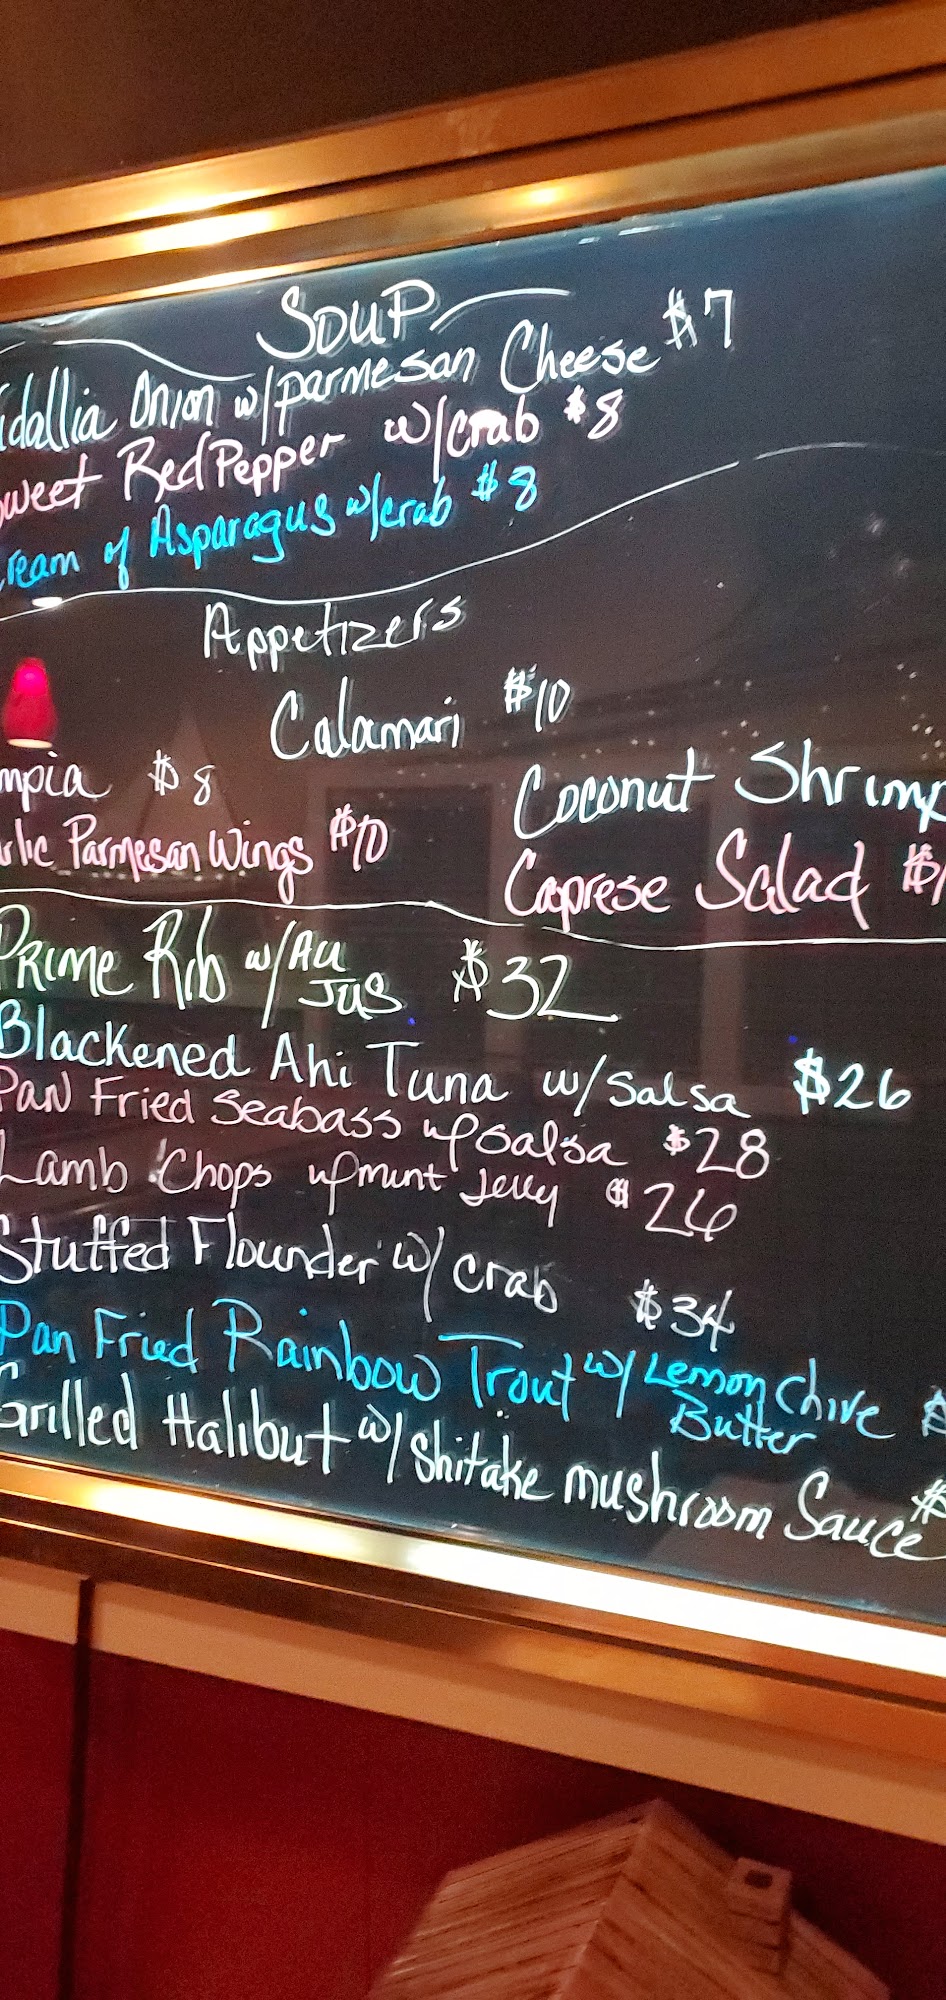 Soup
idallia Onion w/parmesan Cheese $7
weet Red Pepper w/crab $8
ream of Asparagus w/crab $8
Appetizers
Calamari $10
mpia $8
Coconut Shrimp
rlic Parmesan Wings $10
Caprese Salad $1
Prime Rib w/Au Jus $32
Blackened Ahi Tuna w/Salsa $26
Pan Fried Seabass w/salsa $28
Lamb Chops w/mint Jelly $26
Stuffed Flounder w/ crab $34
Pan Fried Rainbow Trout w/ Lemon Chive Butter $
Grilled Halibut w/Shitake mushroom Sauce $